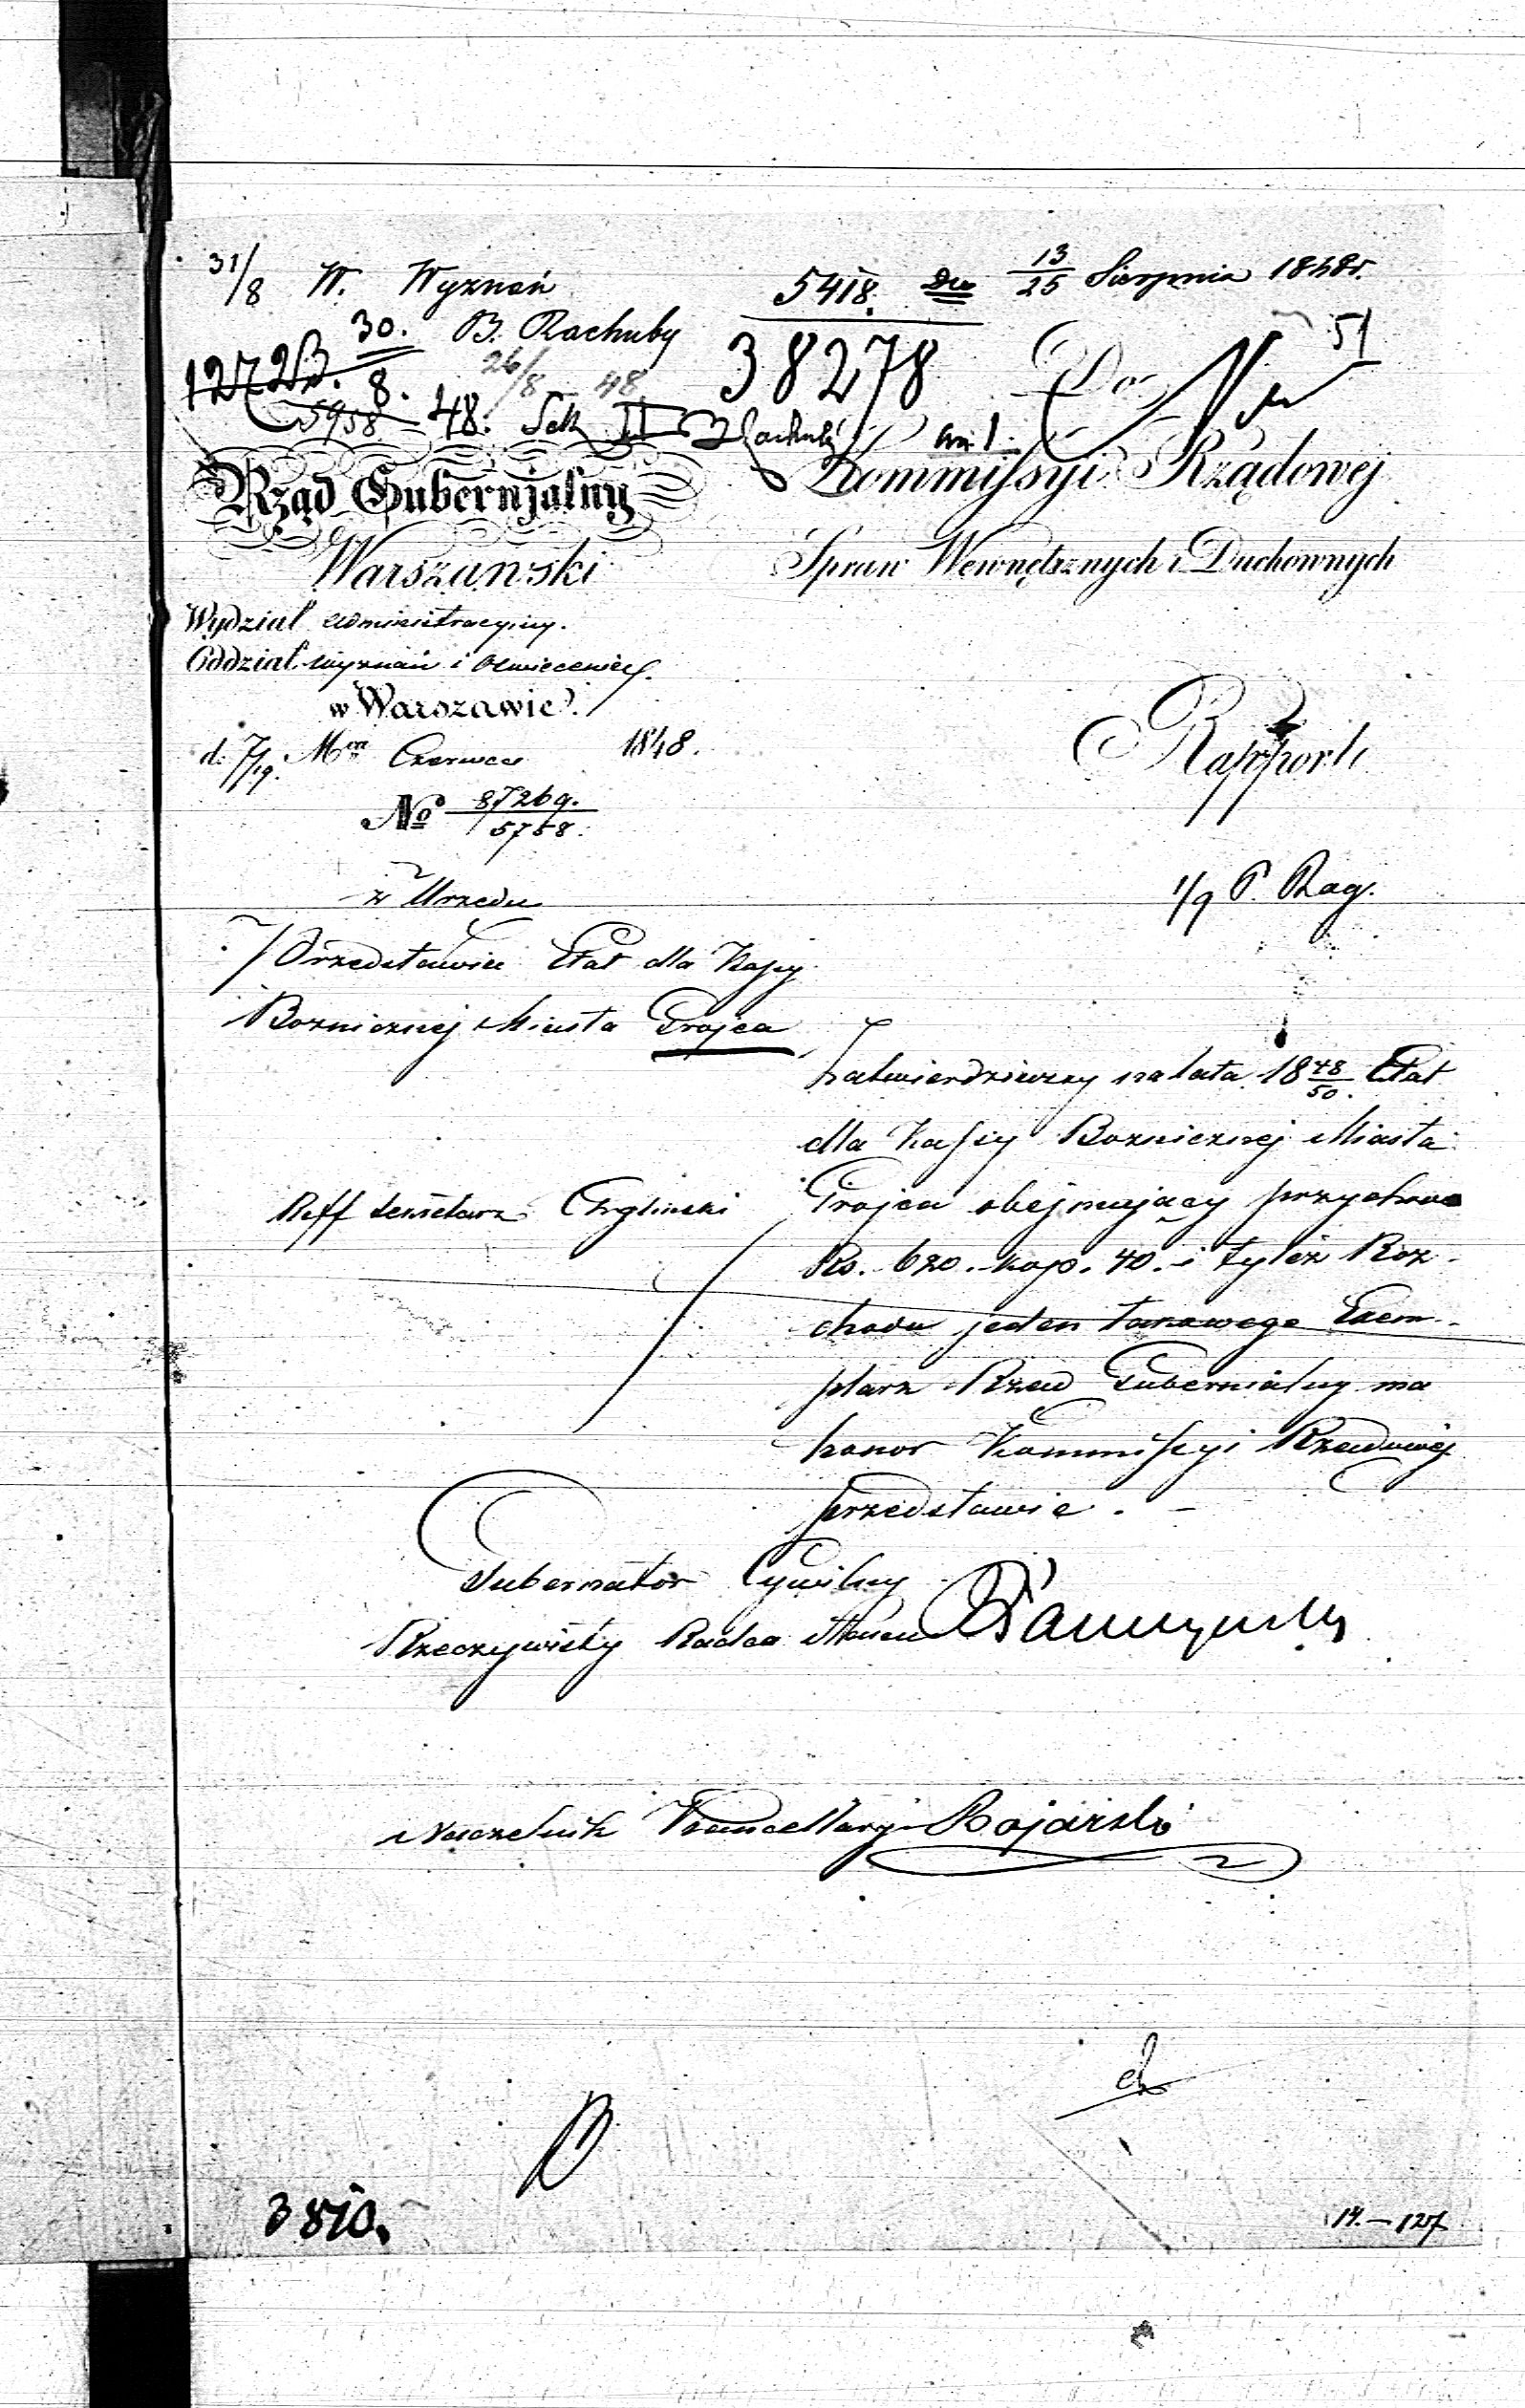 31/8 W. Wyznań 5418. Dn 13/25 Sierpnia 1848r.
30. B. Rachuby 38278 51
1272 B. 8. 26/8 48
5958 48. Sek II B Rachuby Do
Rząd Gubernjalny Kommissyi Rządowej
Warszawski Spraw Wewnętrznych i Duchownych
Wydział Administracyiny.
Oddział Wyznań i Oświecenia
w Warszawie.
d. 7/19. Mca Czerwca 1848. Rapport
No 87269./5758.
z Urzędu 1/9 P. Rag.
Przedstawia Etat dla Kassy
Bozniczney Miasta Grojca
Zatwierdziwszy na lata 18 48/50. Etat
dla Kassy Bozniczney Miasta
Reff Sekretarz Grojca obejmujący przychodu
Rs. 620. kop. 40. i tyleż Roz-
chodu jeden takowego Exem-
plarz Rząd Gubernialny ma
honor Kommissyi Rządowej
przedstawić. -
Gubernator Cywilny
Rzeczywisty Radca Stanu
Naczelnik Kancellaryi
3810.
14.-127